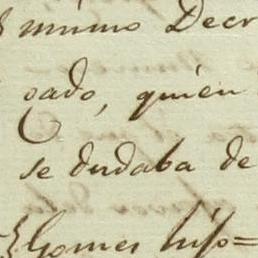 mismo Decr
gado, quien
se dudaba de
Gomes hijo=